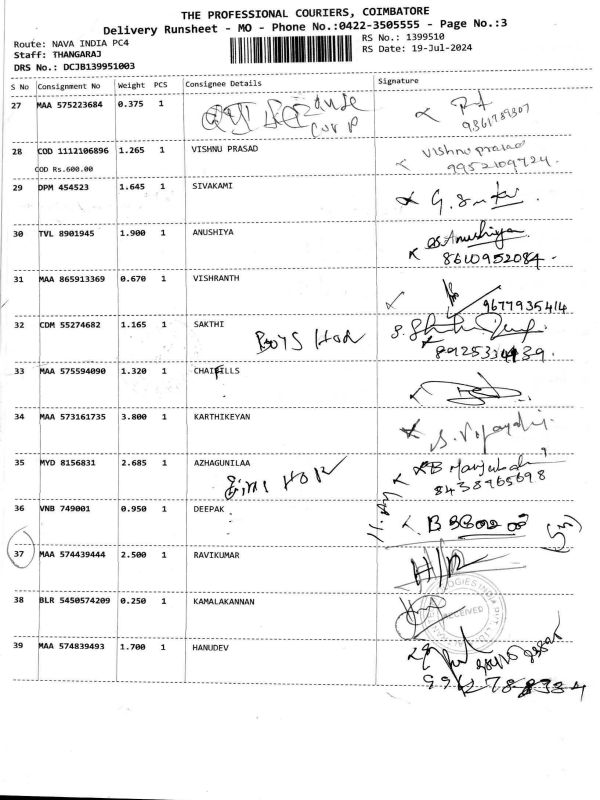 THE PROFESSIONAL COURIERS, COIMBATORE
Delivery Runsheet - MO - Phone No.:0422-3505555 - Page No.:3
Route: NAVA INDIA PC4
Staff: THANGARAJ
DRS No.: DCJB139951003
RS No.: 1399510
RS Date: 19-Jul-2024
S No Consignment No Weight PCS Consignee Details Signature
27 MAA 575223684 0.375 1
corp
9361789307
28 COD 1112106896 1.265 1 VISHNU PRASAD Vishnu prasad
COD Rs.600.00 9952109724
29 DPM 454523 1.645 1 SIVAKAMI
30 TVL 8901945 1.900 1 ANUSHIYA Anushiya
8610952084
31 MAA 865913369 0.670 1 VISHRANTH
9677935414
32 CDM 55274682 1.165 1 SAKTHI
Boys Hos
33 MAA 575594090 1.320 1 CHAIFILLS
34 MAA 573161735 3.800 1 KARTHIKEYAN
35 MYD 8156831 2.685 1 AZHAGUNILAA
8438965698
36 VNB 749001 0.950 1 DEEPAK
37 MAA 574439444 2.500 1 RAVIKUMAR
38 BLR 5450574209 0.250 1 KAMALAKANNAN
RECEIVED
39 MAA 574839493 1.700 1 HANUDEV